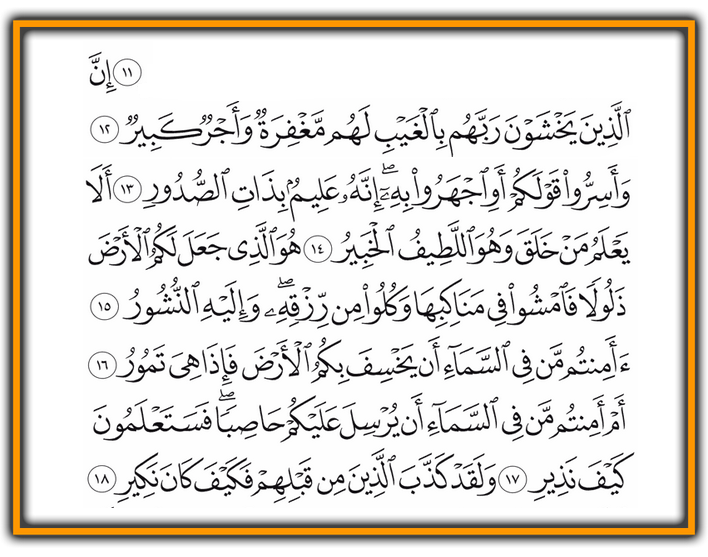 ۝١١ إِنَّ
ٱلَّذِينَ يَخۡشَوۡنَ رَبَّهُم بِٱلۡغَيۡبِ لَهُم مَّغۡفِرَةٞ وَأَجۡرٞ كَبِيرٞ ۝١٢
وَأَسِرُّواْ قَوۡلَكُمۡ أَوِ ٱجۡهَرُواْ بِهِۦٓۖ إِنَّهُۥ عَلِيمُۢ بِذَاتِ ٱلصُّدُورِ ۝١٣ أَلَا
يَعۡلَمُ مَنۡ خَلَقَ وَهُوَ ٱللَّطِيفُ ٱلۡخَبِيرُ ۝١٤ هُوَ ٱلَّذِي جَعَلَ لَكُمُ ٱلۡأَرۡضَ
ذَلُولٗا فَٱمۡشُواْ فِي مَنَاكِبِهَا وَكُلُواْ مِن رِّزۡقِهِۦۖ وَإِلَيۡهِ ٱلنُّشُورُ ۝١٥
ءَأَمِنتُم مَّن فِي ٱلسَّمَآءِ أَن يَخۡسِفَ بِكُمُ ٱلۡأَرۡضَ فَإِذَا هِيَ تَمُورُ ۝١٦
أَمۡ أَمِنتُم مَّن فِي ٱلسَّمَآءِ أَن يُرۡسِلَ عَلَيۡكُمۡ حَاصِبٗاۖ فَسَتَعۡلَمُونَ
كَيۡفَ نَذِيرِ ۝١٧ وَلَقَدۡ كَذَّبَ ٱلَّذِينَ مِن قَبۡلِهِمۡ فَكَيۡفَ كَانَ نَكِيرِ ۝١٨